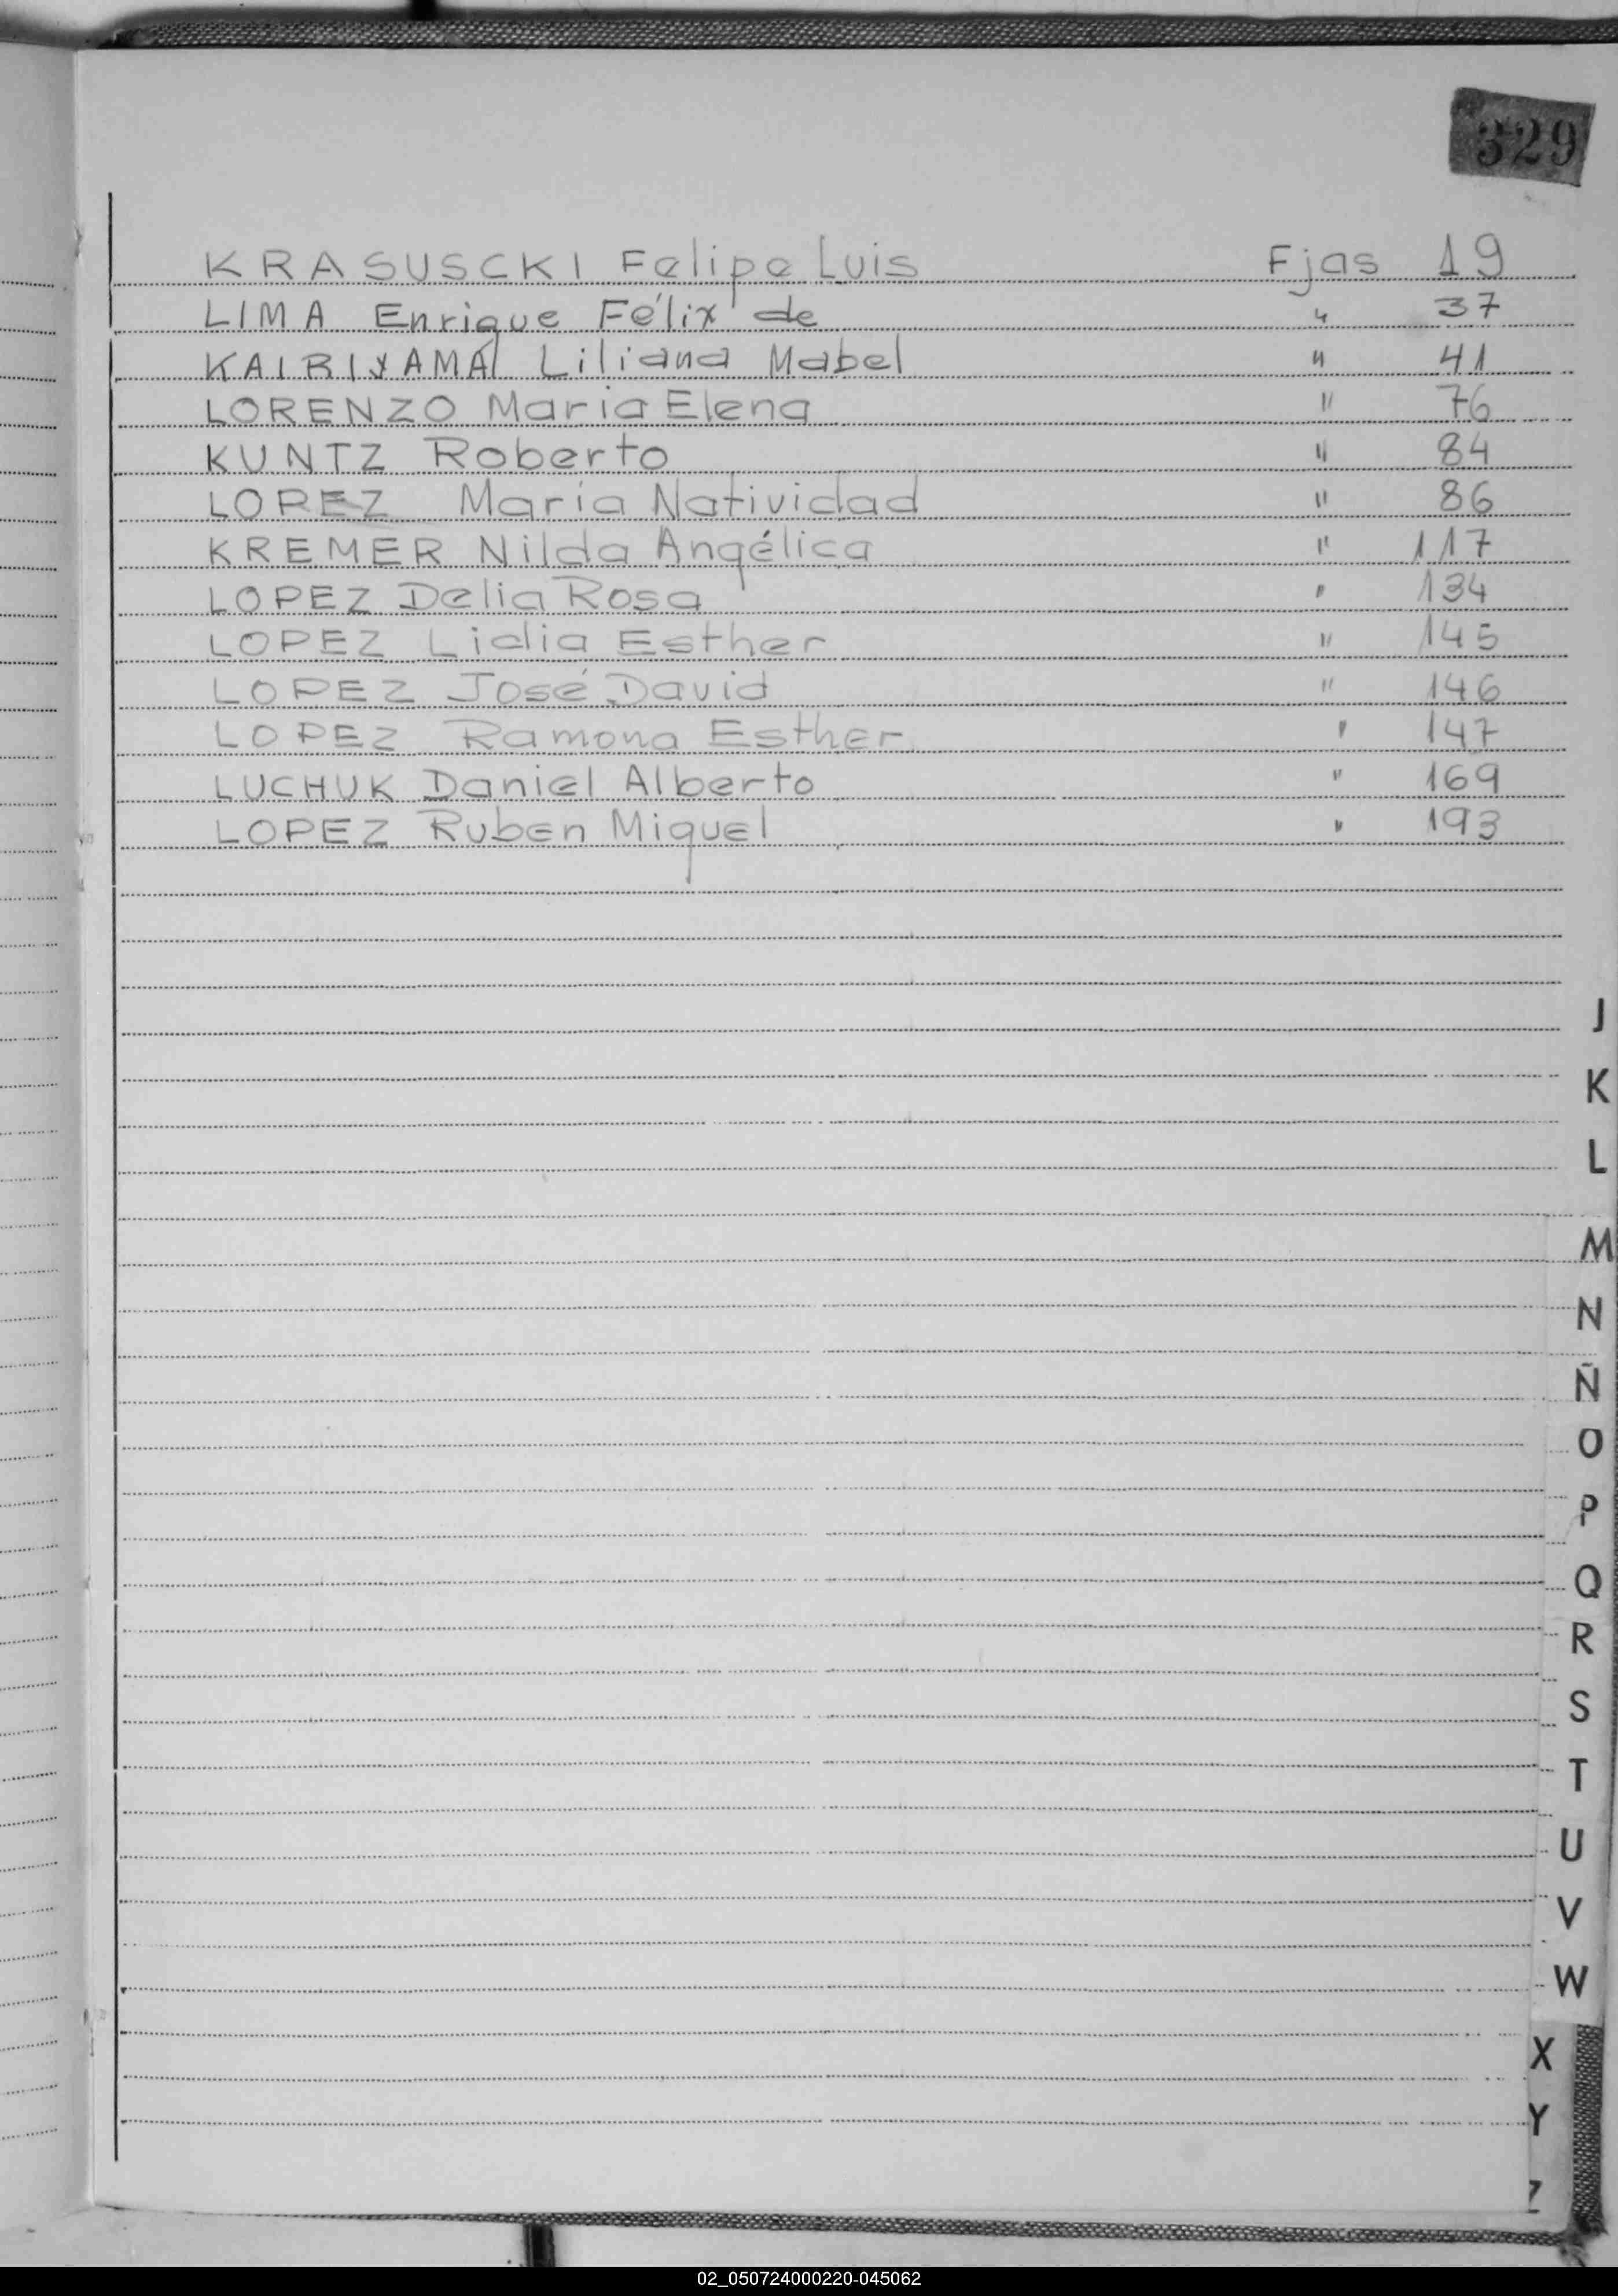 329
KRASUSCKI Felipe Luis Fjas 19
LIMA Enrique Félix de " 37
KAIRIYAMA Liliana Mabel " 41
LORENZO Maria Elena " 76
KUNTZ Roberto " 84
LOPEZ María Natividad " 86
KREMER Nilda Angélica " 117
LOPEZ Delia Rosa " 134
LOPEZ Lidia Esther " 145
LOPEZ José David " 146
LOPEZ Ramona Esther " 147
LUCHUK Daniel Alberto " 169
LOPEZ Ruben Miguel " 193
J
K
L
M
N
Ñ
O
P
Q
R
S
T
U
V
W
X
Y
Z
02_050724000220-045062